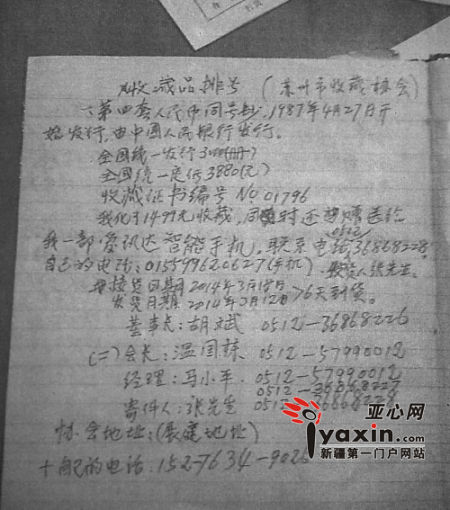 收藏品排号 (苏州市收藏协会)
一、第四套人民币同号钞,1987年4月27日开
始发行,由中国人民银行发行。
全国统一发行3000(册)
全国统一定价3880(元)
收藏证书编号 No 01796
我化了1499元收藏,同时还赠送给
0512
我一部 智能手机,联系电话36868228,
自己的电话:01559962062 7(手机) 张先生。
接货日期2014年3月18日
发货日期2014年3月12日 >6天到货。
董事长:胡斌 0512-36868226
(二)会长:温国栋 0512-57990012
经理:马小平 0512-57990012
寄件人:张先生 0512-36868228
协会地址:(展建地址)
的电话:152-7634-902
亚心网
iyaxin.com
新疆第一门户网站